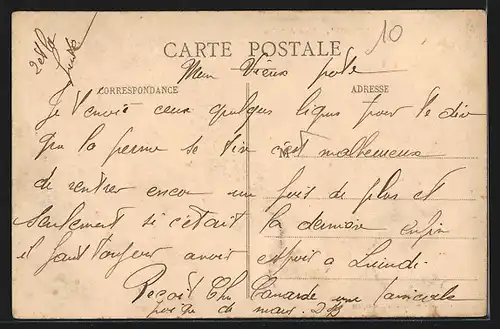 10
CARTE POSTALE
Mon Vieux pote
CORRESPONDANCE
ADRESSE
Je t'envoie ceux quelques lignes pour te dire
que la perme se tire c'est malheureux
M
de rentrer encor un fois de plus et
seulement si c'etait la derniere enfin
il faut toujour avoir espoir a Lundi
Reçoit Ch Canarde une amicale
de mars. 2B